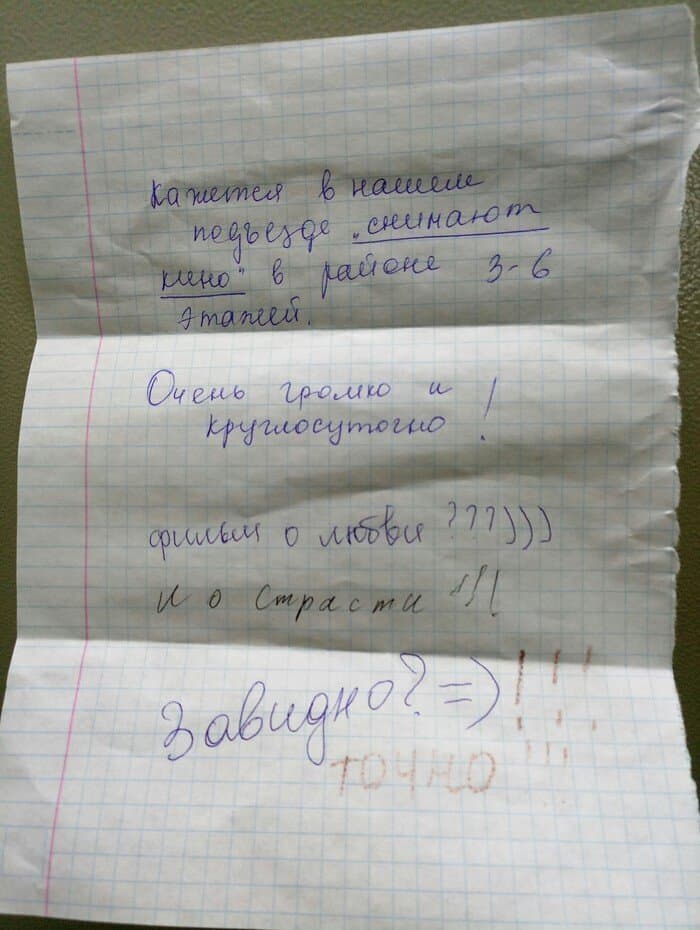 Кажется в нашем
подъезде „снимают
кино" в районе 3-6
этажей.
Очень громко и
круглосуточно!
фильм о любви???)))
и о страсти!!!
Завидно?=)!!!
ТОЧНО!!!